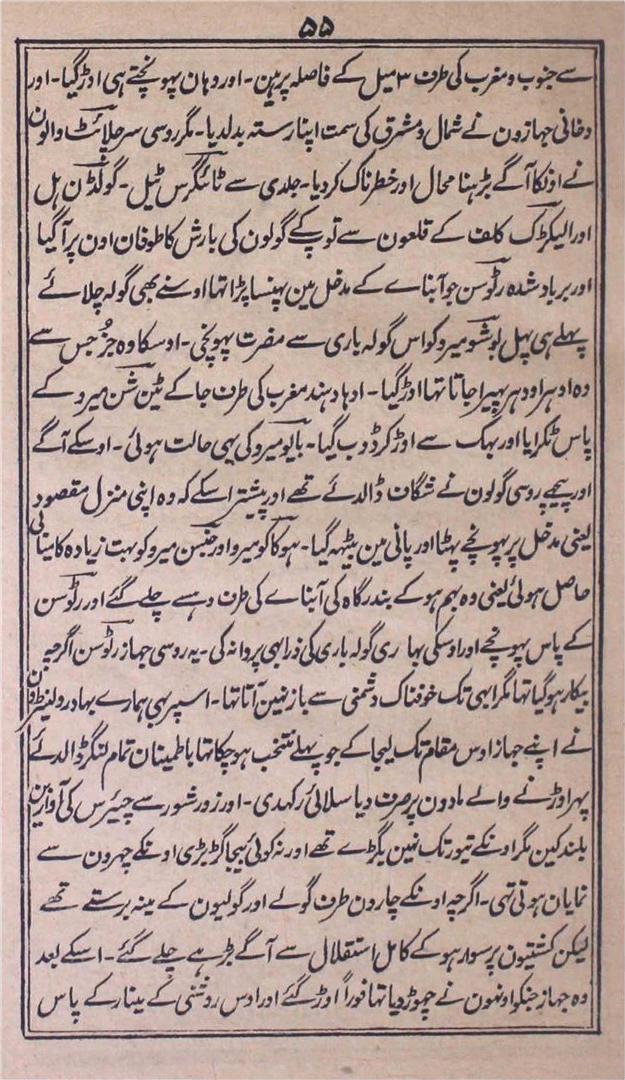 ۵۵
سے جنوب و مغرب کی طرف ۳ میل کے فاصلہ پر ہین۔ اور وہان پہونچتے ہی اوڑ گیا۔ اور
دخانی جہازون نے شمال و مشرق کی سمت اپنا رستہ بدلدیا۔ مگر روسی سرچلائٹ والون
نے اونکا آگے بڑہنا محال اور خطرناک کر دیا۔ جلدی سے ٹائگرس ٹیل۔ گولڈن ہل
اور الیکڑک کلف کے قلعون سے توپ کے گولون کی بارش کا طوفان اون پر آ گیا
اور برباد شدہ رٹوسن جو آبناے کے مدخل مین پہنسا پڑا تہا اوسنے بھی گولہ چلائے
پہلے ہی پہل بوشو میرو کو اس گولہ باری سے مضرت پہونچی۔ اوسکا وہ جزُ جس سے
وہ ادہر اودہر پہیرا جاتا تہا اوڑ گیا۔ ادہا دہند مغرب کی طرف جا کے ٹین شن میرو کے
پاس ٹکرایا اور بہک سے اوڑ کر ڈوب گیا۔ بایو میرو کی یہی حالت ہوئی۔ اوسکے آگے
اور پیچہے روسی گولون نے شگاف ڈالدئے تھے اور پیشتر اسکے کہ وہ اپنی منزل مقصود
یعنی مدخل پر پہونچے پہٹا اور پانی مین بیٹہہ گیا۔ ہوکاکو میرو اور جنسن میرو کو بہت زیادہ کامیابی
حاصل ہوئی یعنی وہ بہم ہو کے بندرگاہ کی آبناے کی طرف دہسے چلے گئے اور رٹوسن
کے پاس پہونچے اور اوسکی بہاری گولہ باری کی ذرا بہی پروانہ کی۔ یہ روسی جہاز رٹوسن اگرچہ
بیکار ہو گیا تہا مگر ابہی تک خوفناک دشمنی سے باز نہین آتا تہا۔ اسپر بہی ہمارے بہادر ولنیٹرون
نے اپنے جہاز اوس مقام تک لیجا کے جو پہلے منتخب ہو چکا تہا باطمینان تمام لنگر ڈالدئے
پہر اوڑنے والے مادون پر صرف دیا سلائی رکہدی۔ اور زور شور سے چیئرس کی آوازین
بلند کین مگر اونکے تیور تک نہین بگڑے تھے اور نہ کوئی بیجا گڑبڑی اونکے چہرون سے
نمایان ہوتی تہی۔ اگرچہ اونکے چارون طرف گولے اور گولیون کے مینہ برستے تھے
لیکن کشتیون پر سوار ہو کے کامل استقلال سے آگے بڑہے چلے گئے۔ اسکے بعد
وہ جہاز جنکو اونہون نے چہوڑ دیا تہا فوراً اوڑ گئے اور اوس روشنی کے مینار کے پاس